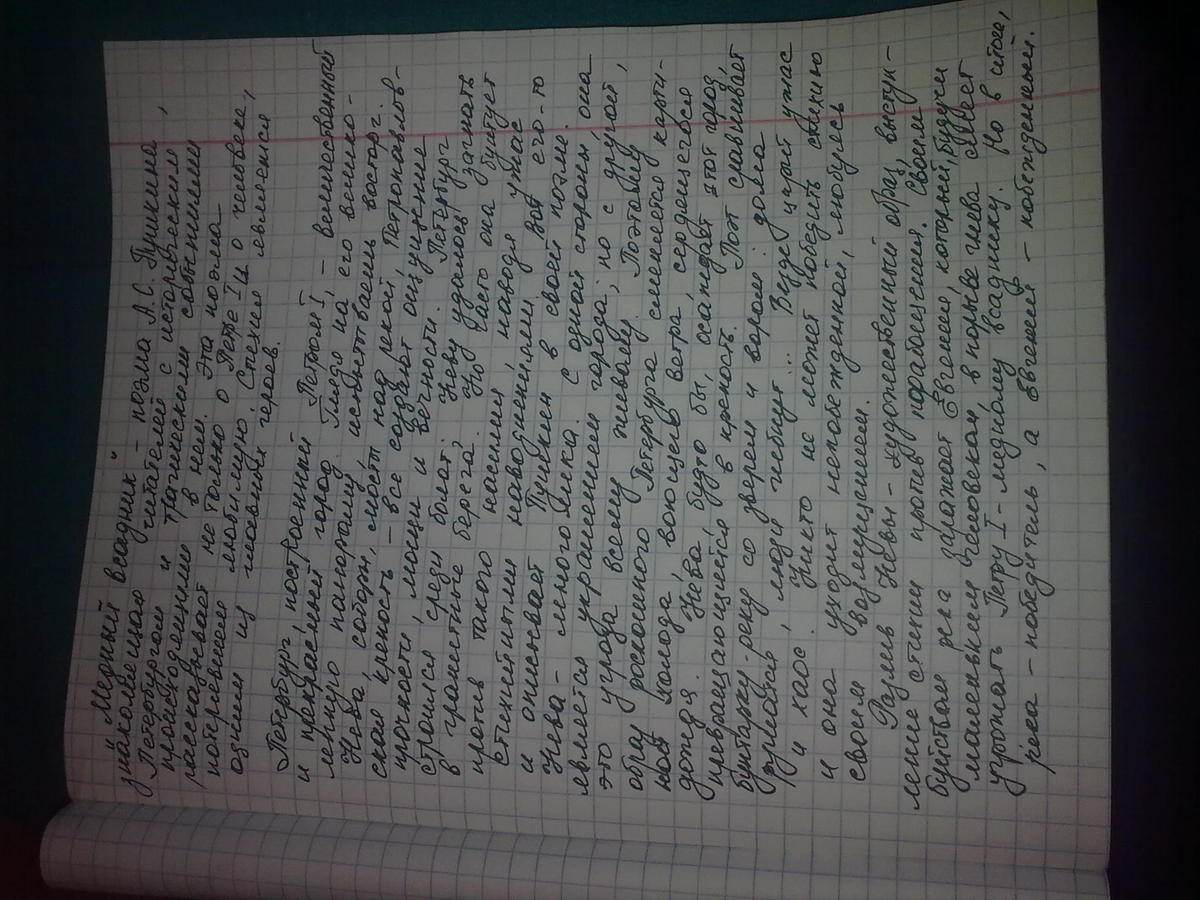 „Медный всадник" – поэма А.С. Пушкина,
знакомящая читателей с историческим
Петербургом и трагическими событиями
происходящими в нем. Эта поэма
рассказывает не только о Петре I и о человеке,
потерявшем любимую. Стихия является
одним из главных героев.
Петербург, построенный Петром I, – величественный
и прекрасный город. Глядя на его велико-
лепную панораму, испытываешь восторг.
Нева, соборы, мосты над рекой, Петропавлов-
ская крепость – все создает ощущение
прочности, мощи и вечности. Петербург
строился среди болот. Неву удалось загнать
в гранитные берега. Но часто она бунтует
против такого насилия, наводя ужас
стихийными наводнениями. Вот его-то
и описывает Пушкин в своей поэме.
Нева – многолика. С одной стороны она
является украшением города, но с другой,
это угроза всему живому. Поэтому
образ роскошного Петербурга сменяется карти-
ной холода, воющего ветра, сердящегося
дождя. Нева, будто бы, осаждает этот город,
превращающийся в крепость. Поэт сравнивает
бунтарку-реку со зверем и вором: дома
рушатся, люди гибнут... Везде царит ужас
и хаос. Никто не может победить стихию
и она уходит непобежденной, любуясь
своим возмущением.
Разлив Невы – художественный образ, выступ-
ление стихии против порабощения. Своим
буйством река заражает Евгения, который, будучи
маленьким человеком, в порыве гнева смеет
угрожать Петру I – медному всаднику. Но в итоге,
река – победитель, а Евгений – побежденный.